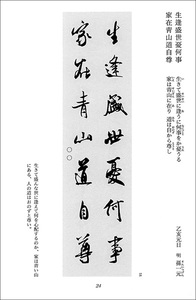 生逢盛世憂何事
家在青山道自尊
生きて盛世に逢うに何事をか憂うる
家は青山に在り 道は自から尊し
乙亥元日 明
生逢盛世憂何事
家在青山道自尊
生きて盛んな世に逢えて何を心配するのか。家は青い山
にある。人の道はおのずと尊い。
24